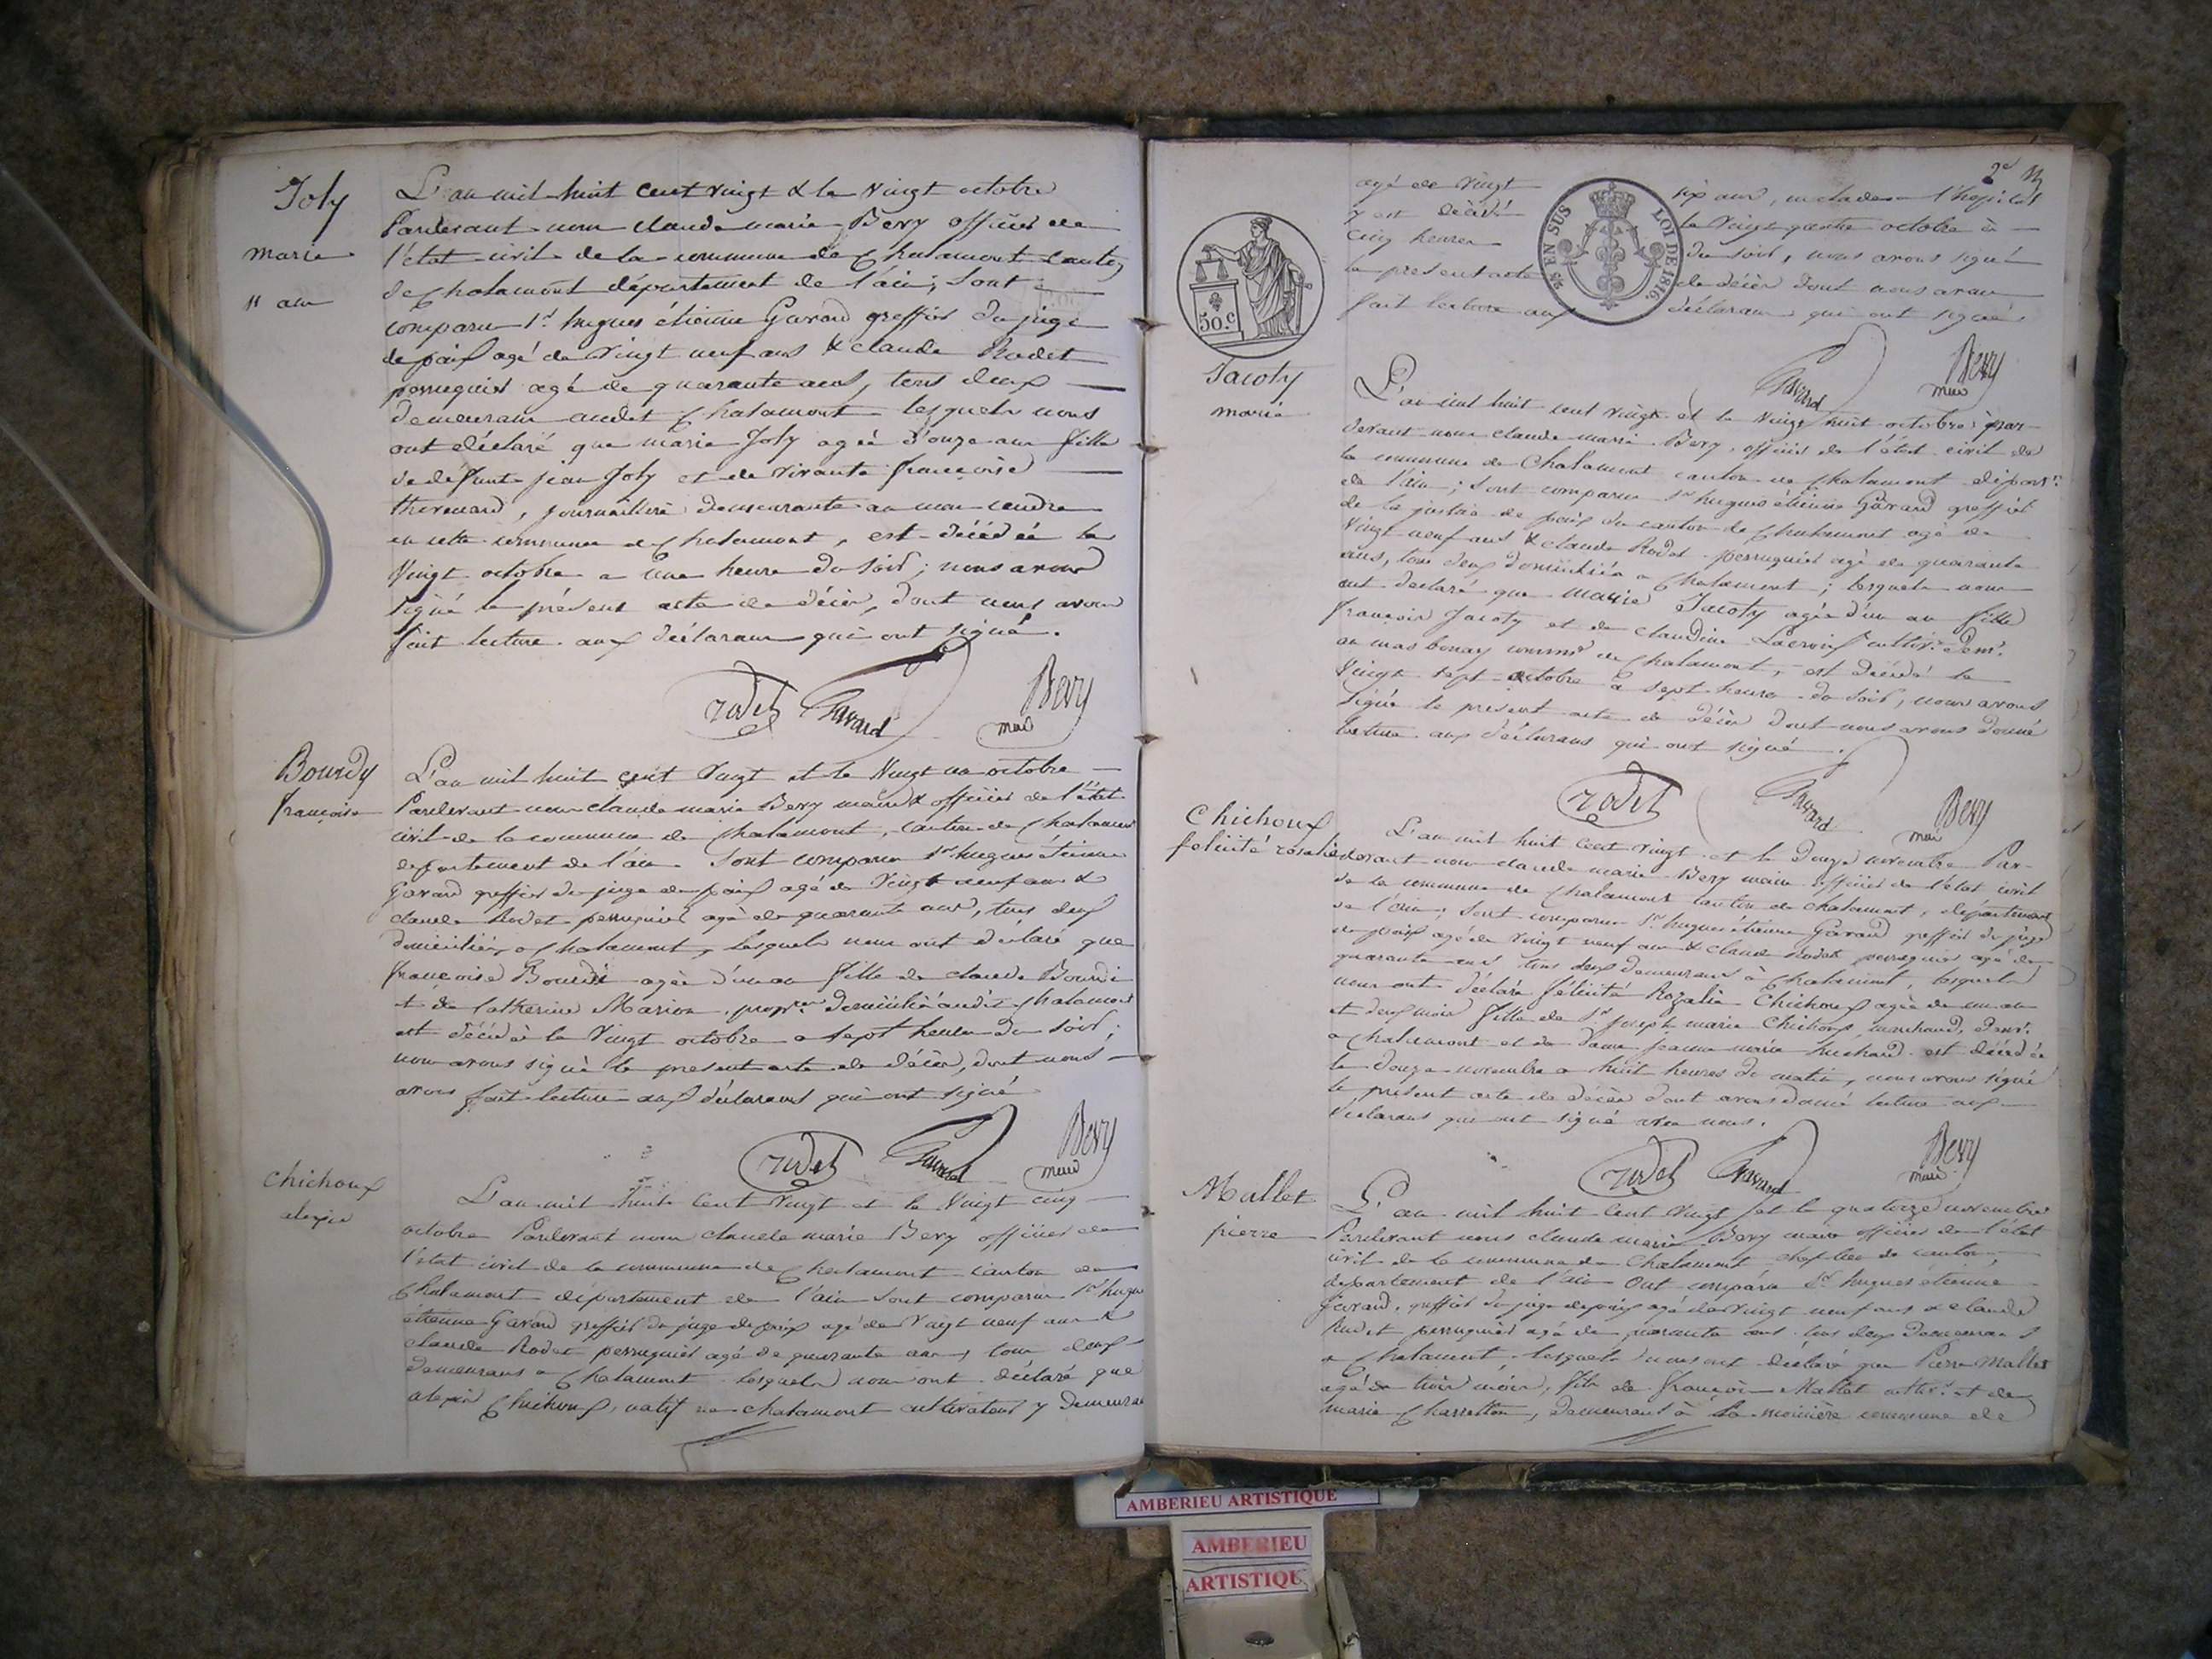 Joly
marie
11 ans
L'an mil huit cent vingt & le vingt octobre
Pardevant nous claude marie Bevy officier de
l'état civil de la commune de Chalamont canton
de Chalamont département de l'ain; sont
comparu Sr hugues étienne Gavand greffier du juge
de paix agé de vingt neuf ans & claude Rodet
perruquier agé de quarante ans, tous deux
demeurans audit Chalamont lesquels nous
ont déclaré que marie Joly agée d'onze ans fille
de défunt jean Joly et de vivante françoise
thevenard, journalière demeurante au mas
en cette commune de Chalamont, est décédée le
vingt octobre a une heure du soir; nous avons
signé le présent acte de décès, dont nous avons
fait lecture aux déclarans qui ont signé.
rodet Gavand Bevy
maire
Bourdy
françoise
L'an mil huit cent vingt et le vingt un octobre
Pardevant nous claude marie Bevy maire & officier de l'état
civil de la commune de Chalamont, canton de Chalamont
département de l'ain. sont comparu Sr hugues étienne
Gavand greffier du juge de paix agé de vingt neuf ans &
claude Rodet perruquier agé de quarante ans, tous deux
domiciliés a Chalamont, lesquels nous ont déclaré que
françoise Bourdi agée d'un an fille de claude Bourdi
et de Catherine Marion, domiciliés audit Chalamont
est décédée le vingt octobre a sept heures du soir;
nous avons signé le présent acte de décès, dont nous
avons fait lecture aux déclarans qui ont signé
rodet Gavand Bevy
maire
Chichoux
alexis
L'an mil huit cent vingt et le vingt cinq
octobre Pardevant nous claude marie Bevy officier de
l'état civil de la commune de Chalamont canton de
Chalamont département de l'ain sont comparu Sr hugues
étienne Gavand greffier du juge de paix agé de vingt neuf ans &
claude Rodet perruquier agé de quarante ans, tous deux
demeurans a Chalamont lesquels nous ont déclaré que
alexis Chichoux, natif de chalamont cultivateur y demeurant
2e
agé de vingt six ans, malade a l'hopital
y est décédé le vingt quatre octobre à
cinq heures du soir, nous avons signé
le présent acte de décès dont nous avons
fait lecture aux déclarans qui ont signé
EN SUS
LOI DE 1816.
50.c
Gavand Bevy
maire
Jacoty
marie
L'an mil huit cent vingt et le vingt huit octobre par-
devant nous claude marie Bevy, officier de l'état civil de
la commune de Chalamont canton de Chalamont départ.t
de l'ain; sont comparu Sr hugues étienne Gavand greffier
de la justice de paix du canton de Chalamont agé de
vingt neuf ans & claude Rodet perruquier agé de quarante
ans, tous deux domiciliés a Chalamont; lesquels nous
ont déclaré que marie Jacoty agée d'un an fille
françois Jacoty et de claudine Lacroix cultiv.r dem.t
au mas bonay commune de Chalamont, est décédé le
vingt sept octobre à sept heures du soir, nous avons
signé le présent acte de décès dont nous avons donné
lecture aux déclarans qui ont signé.
rodet Gavand Bevy
maire
Chichoux
felicité rosalie
L'an mil huit cent vingt et le douze novembre Par-
devant nous claude marie Bevy maire officier de l'état civil
de la commune de Chalamont canton de Chalamont, département
de l'ain; sont comparu Sr hugues étienne Gavand greffier du juge
de paix agé de vingt neuf ans & claude Rodet perruquier agé de
quarante ans tous deux demeurans à Chalamont, lesquels
nous ont déclaré félicité Rozalie Chichoux agée de un an
et deux mois fille de Sr joseph marie Chichoux marchand, dem.t
a Chalamont et de dame jeanne marie est décédée
le douze novembre a huit heures du matin, nous avons signé
le présent acte de décès dont avons donné lecture aux
déclarans qui ont signé avec nous.
rodet Gavand Bevy
maire
Mallet
pierre
L'an mil huit cent vingt et le quatorze novembre
Pardevant nous claude marie Bevy maire officier de l'état
civil de la commune de Chalamont chef lieu de canton,
département de l'ain Ont comparu Sr hugues étienne
Gavand, greffier du juge de paix agé de vingt neuf ans & claude
Rodet perruquier agé de quarante ans tous deux demeurans
a Chalamont, lesquels nous ont déclaré que Pierre Mallet
agé de trois mois, fils de françois Mallet cultiv.r et de
marie Charretton, demeurant à la commune de
AMBERIEU ARTISTIQUE
AMBERIEU
ARTISTIQU